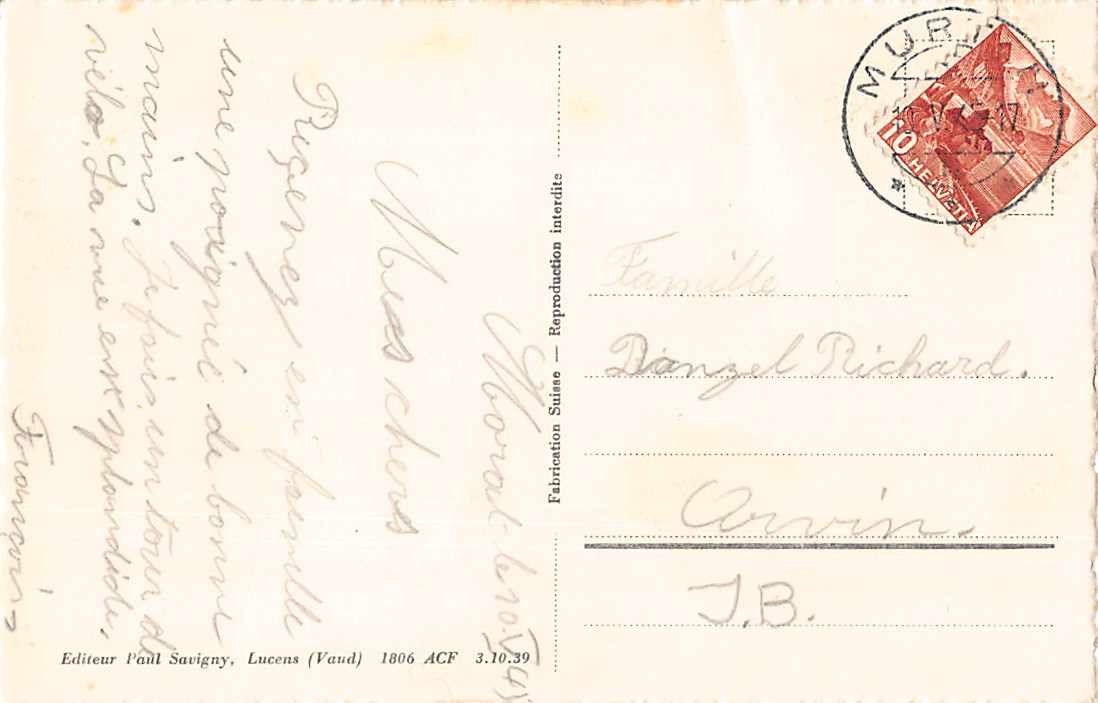 Morat le 10 V 45
Mes chers
Reçevez en famille
une poignié de bonne
mains. Je fais un tour de
vélo. La vue est splandide.
François
Editeur Paul Savigny, Lucens (Vaud) 1806 ACF 3.10.39
Fabrication Suisse — Reproduction interdite
MURTEN
10 HELVETIA
Famille
Danzel Richard.
Orvin.
J.B.